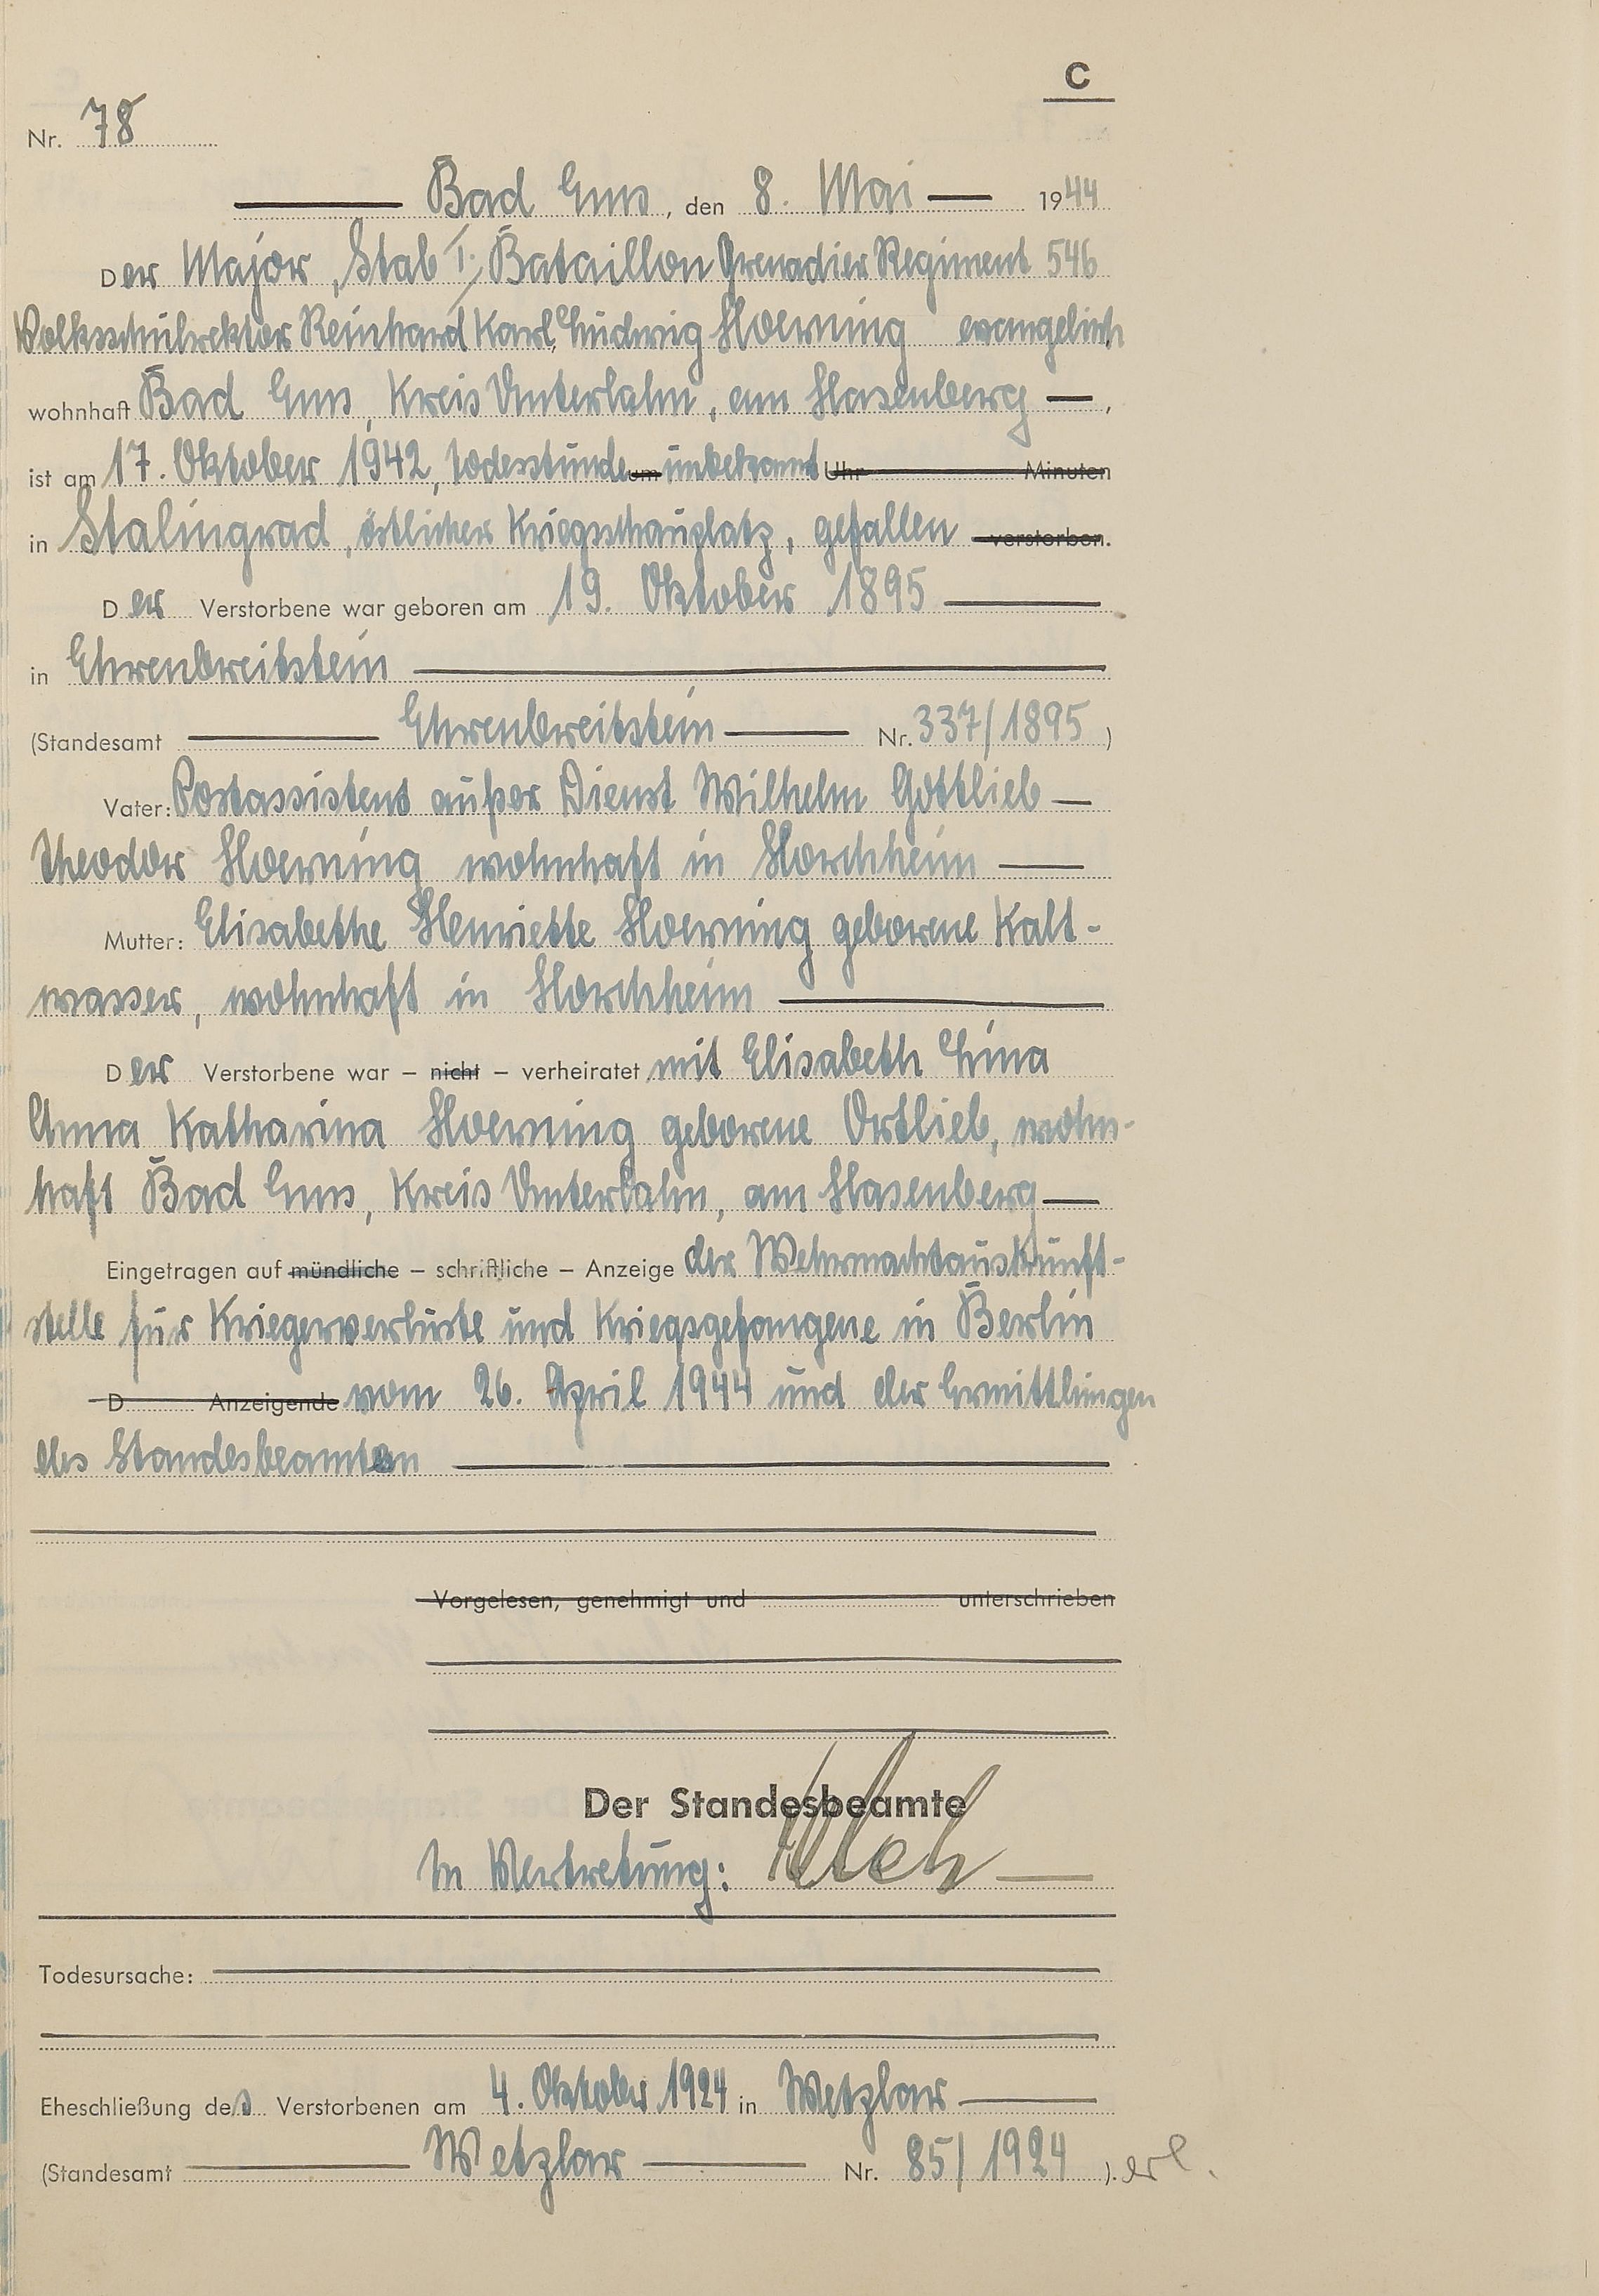 C
Nr. 78
Bad Ems, den 8. Mai 1944
Der Major, Stab I./ Bataillon Grenadier Regiment 546
Volksschulrektor Reinhard Karl Ludwig Hoerning evangelisch
wohnhaft Bad Ems, Kreis Unterlahn, am Hasenberg,
ist am 17. Oktober 1942, Todesstunde um unbekannt Uhr Minuten
in Stalingrad, östlicher Kriegsschauplatz, gefallen verstorben.
Der Verstorbene war geboren am 19. Oktober 1895
in Ehrenbreitstein
(Standesamt Ehrenbreitstein Nr. 337/1895)
Vater: Postassistent außer Dienst Wilhelm Gottlieb
Theodor Hoerning wohnhaft in Horchheim
Mutter: Elisabethe Henriette Hoerning geborene Kalt-
wasser, wohnhaft in Horchheim
Der Verstorbene war – nicht – verheiratet mit Elisabeth Lina
Anna Katharina Hoerning geborene Ortlieb, wohn-
haft Bad Ems, Kreis Unterlahn, am Hasenberg
Eingetragen auf mündliche – schriftliche – Anzeige der Wehrmachtauskunft-
stelle für Kriegerverluste und Kriegsgefangene in Berlin
D Anzeigende vom 26. April 1944 und der Ermittlungen
des Standesbeamten
Vorgelesen, genehmigt und unterschrieben
Der Standesbeamte
In Vertretung:
Todesursache:
Eheschließung des Verstorbenen am 4. Oktober 1924 in Wetzlar
(Standesamt Wetzlar Nr. 85/1924). erl.